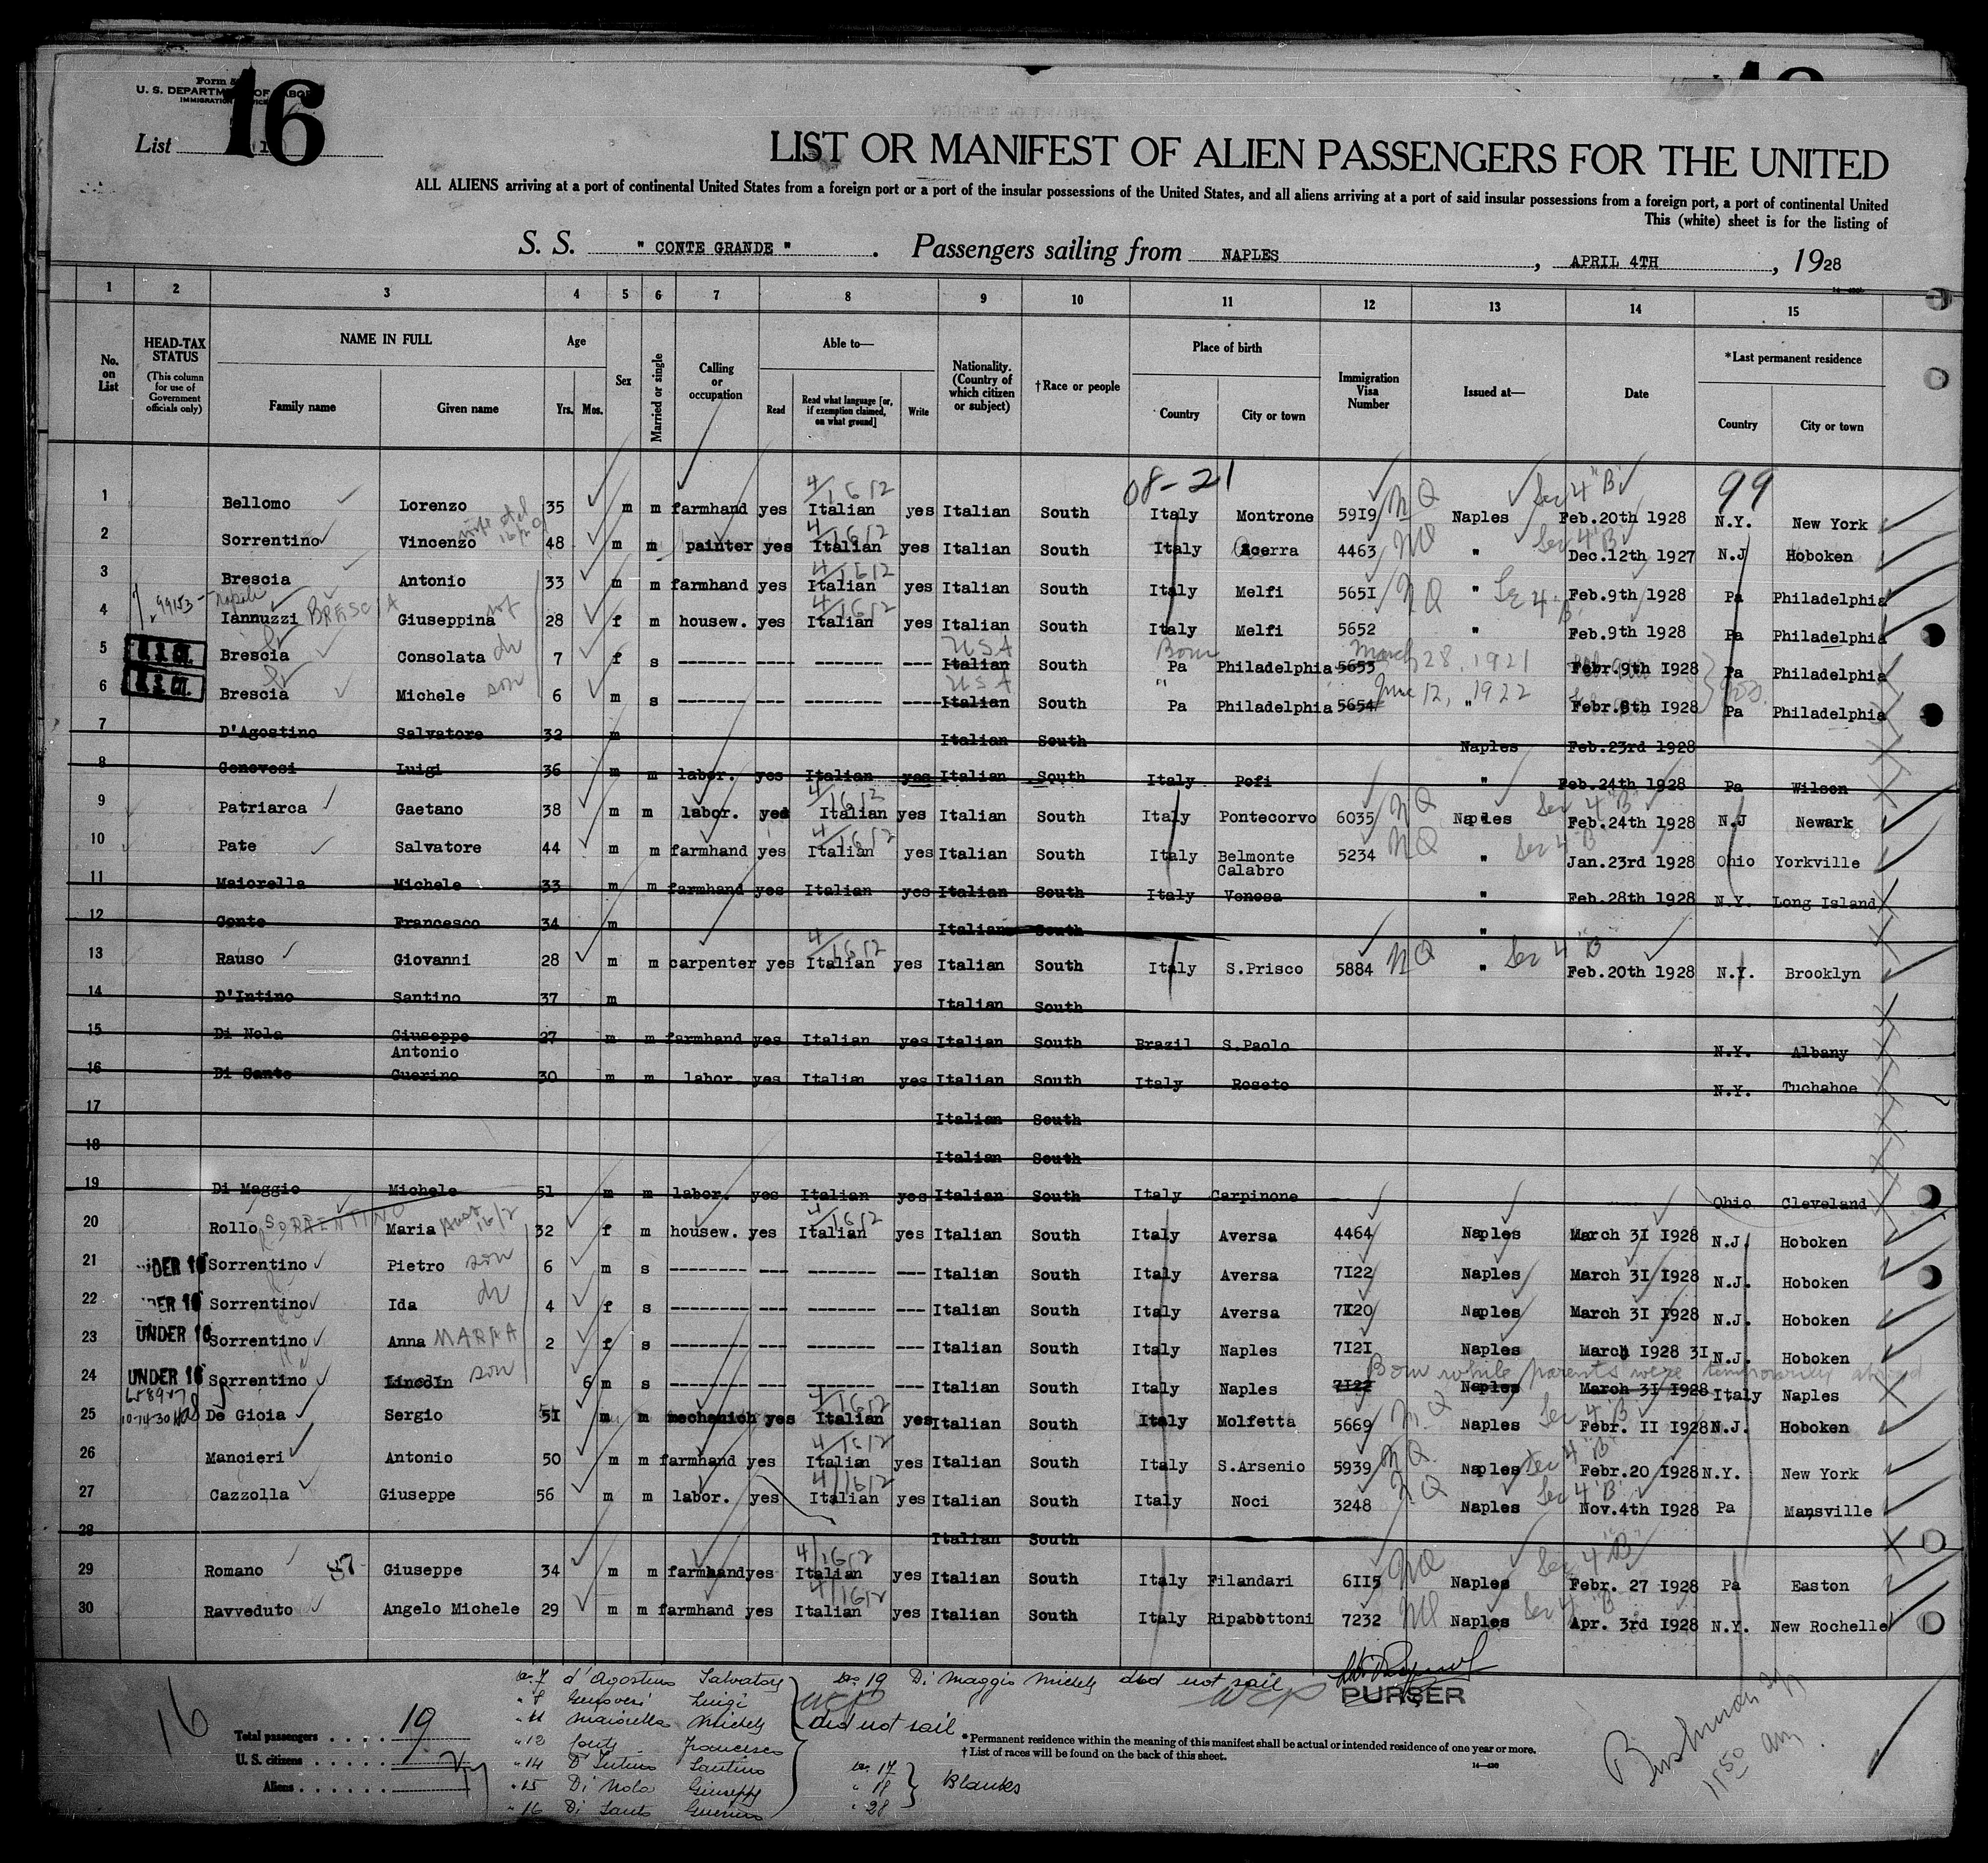 Form
U. S. DEPARTMENT OF LABOR
IMMIGRATION SERVICE
16
List
LIST OR MANIFEST OF ALIEN PASSENGERS FOR THE UNITED
ALL ALIENS arriving at a port of continental United States from a foreign port or a port of the insular possessions of the United States, and all aliens arriving at a port of said insular possessions from a foreign port, a port of continental United
This (white) sheet is for the listing of
S. S. " CONTE GRANDE " . Passengers sailing from NAPLES , APRIL 4TH , 1928
1 2 3 4 5 6 7 8 9 10 11 12 13 14 15
No. on List
HEAD-TAX STATUS (This column for use of Government officials only)
NAME IN FULL Family name Given name
Age Yrs. Mos.
Sex
Married or single
Calling or occupation
Able to— Read Read what language [or, if exemption claimed, on what ground] Write
Nationality. (Country of which citizen or subject)
†Race or people
Place of birth Country City or town
Immigration Visa Number
Issued at—
Date
*Last permanent residence Country City or town
08-21 99
1 Bellomo Lorenzo 35 m m farmhand yes 4/1612 Italian yes Italian South Italy Montrone 5919 NQ Naples Sec 4 "B" Feb.20th 1928 N.Y. New York
2 Sorrentino Vincenzo 48 m m painter yes 4/1612 Italian yes Italian South Italy Acerra 4463 NQ " Sec 4 "B" Dec.12th 1927 N.J Hoboken
3 Brescia Antonio 33 m m farmhand yes 4/1612 Italian yes Italian South Italy Melfi 5651 NQ " Sec 4 "B" Feb.9th 1928 Pa Philadelphia
4 99153 Napoli Iannuzzi BRESCIA Giuseppina 28 f m housew. yes 4/1612 Italian yes Italian South Italy Melfi 5652 " Feb.9th 1928 Pa Philadelphia
5 Brescia Consolata 7 f s ------- ---- ------- --- USA Italian South Born Pa Philadelphia 5653 March 28, 1921 Febr.9th 1928 Pa Philadelphia
6 Brescia Michele son 6 m s -------- --- -------- ---- USA Italian South " Pa Philadelphia 5654 June 12, 1922 " Febr.9th 1928 Pa Philadelphia
7 D'Agostino Salvatore 32 m Italian South Naples Feb.23rd 1928
8 Genovesi Luigi 36 m m labor. yes Italian yes Italian South Italy Pofi " Feb.24th 1928 Pa Wilson
9 Patriarca Gaetano 38 m m labor. yes 4/1612 Italian yes Italian South Italy Pontecorvo 6035 NQ Naples Sec 4 "B" Feb.24th 1928 N.J Newark
10 Pate Salvatore 44 m m farmhand yes 4/1612 Italian yes Italian South Italy Belmonte Calabro 5234 NQ " Sec 4 "B" Jan.23rd 1928 Ohio Yorkville
11 Maiorella Michele 33 m m farmhand yes Italian yes Italian South Italy Venosa " Feb.28th 1928 N.Y. Long Island
12 Conte Francesco 34 m Italian South "
13 Rauso Giovanni 28 m m carpenter yes 4/1612 Italian yes Italian South Italy S.Prisco 5884 NQ " Sec 4 "B" Feb.20th 1928 N.Y. Brooklyn
14 D'Intino Santino 37 m Italian South
15 Di Nola Giuseppe Antonio 27 m m farmhand yes Italian yes Italian South Brazil S.Paolo N.Y. Albany
16 Di Santo Guerino 30 m m labor. yes Italian yes Italian South Italy Roseto N.Y. Tuchahoe
17 Italian South
18 Italian South
19 Di Maggio Michele 51 m m labor. yes Italian yes Italian South Italy Carpinone Ohio Cleveland
20 Rollo SORRENTINO Maria 32 f m housew. yes 4/1612 Italian yes Italian South Italy Aversa 4464 Naples March 3I I928 N.J. Hoboken
21 UNDER 16 Sorrentino Pietro son 6 m s -------- --- ------- --- Italian South Italy Aversa 7I22 Naples March 3I I928 N.J. Hoboken
22 UNDER 16 Sorrentino Ida 4 f s -------- --- ------- --- Italian South Italy Aversa 7I20 Naples March 3I I928 N.J. Hoboken
23 UNDER 16 Sorrentino Anna MARIA 2 f s -------- --- ------- --- Italian South Italy Naples 7I2I Naples March I928 3I N.J. Hoboken
24 UNDER 16 Sorrentino Lincoln son 6 m s -------- --- ------- --- Italian South Italy Naples 7122 Born while parents were temporarily abroad Naples March 3I I928 Italy Naples
25 10-14-30 De Gioia Sergio 5I m m mechanich yes 4/1612 Italian yes Italian South Italy Molfetta 5669 NQ Naples Sec 4 "B" Febr. II I928 N.J. Hoboken
26 Mancieri Antonio 50 m m farmhand yes 4/1612 Italian yes Italian South Italy S.Arsenio 5939 NQ Naples Sec 4 "B" Febr.20 I928 N.Y. New York
27 Cazzolla Giuseppe 56 m m labor. yes 4/1612 Italian yes Italian South Italy Noci 3248 NQ Naples Sec 4 "B" Nov.4th I928 Pa Mansville
28 Italian South
29 Romano 87 Giuseppe 34 m m farmhand yes 4/1612 Italian yes Italian South Italy Filandari 6II5 NQ Naples Sec 4 "B" Febr. 27 I928 Pa Easton
30 Ravveduto Angelo Michele 29 m m farmhand yes 4/1612 Italian yes Italian South Italy Ripabottoni 7232 NQ Naples Sec 4 "B" Apr. 3rd I928 N.Y. New Rochelle
No. 7 d'Agostino Salvatore No. 19 Di Maggio Michele did not sail
" 8 Genovesi Luigi
" 11 Maiorella Michele did not sail
" 12 Conte Francesco
" 14 D'Intino Santino No. 17
" 15 Di Nola Giuseppe " 18 Blanks
" 16 Di Santo Guerino " 28
PURSER
16
Total passengers . . . . 19
U. S. citizens . . . . .
Aliens . . . . . .
*Permanent residence within the meaning of this manifest shall be actual or intended residence of one year or more.
†List of races will be found on the back of this sheet.
Bushman
11 50 am